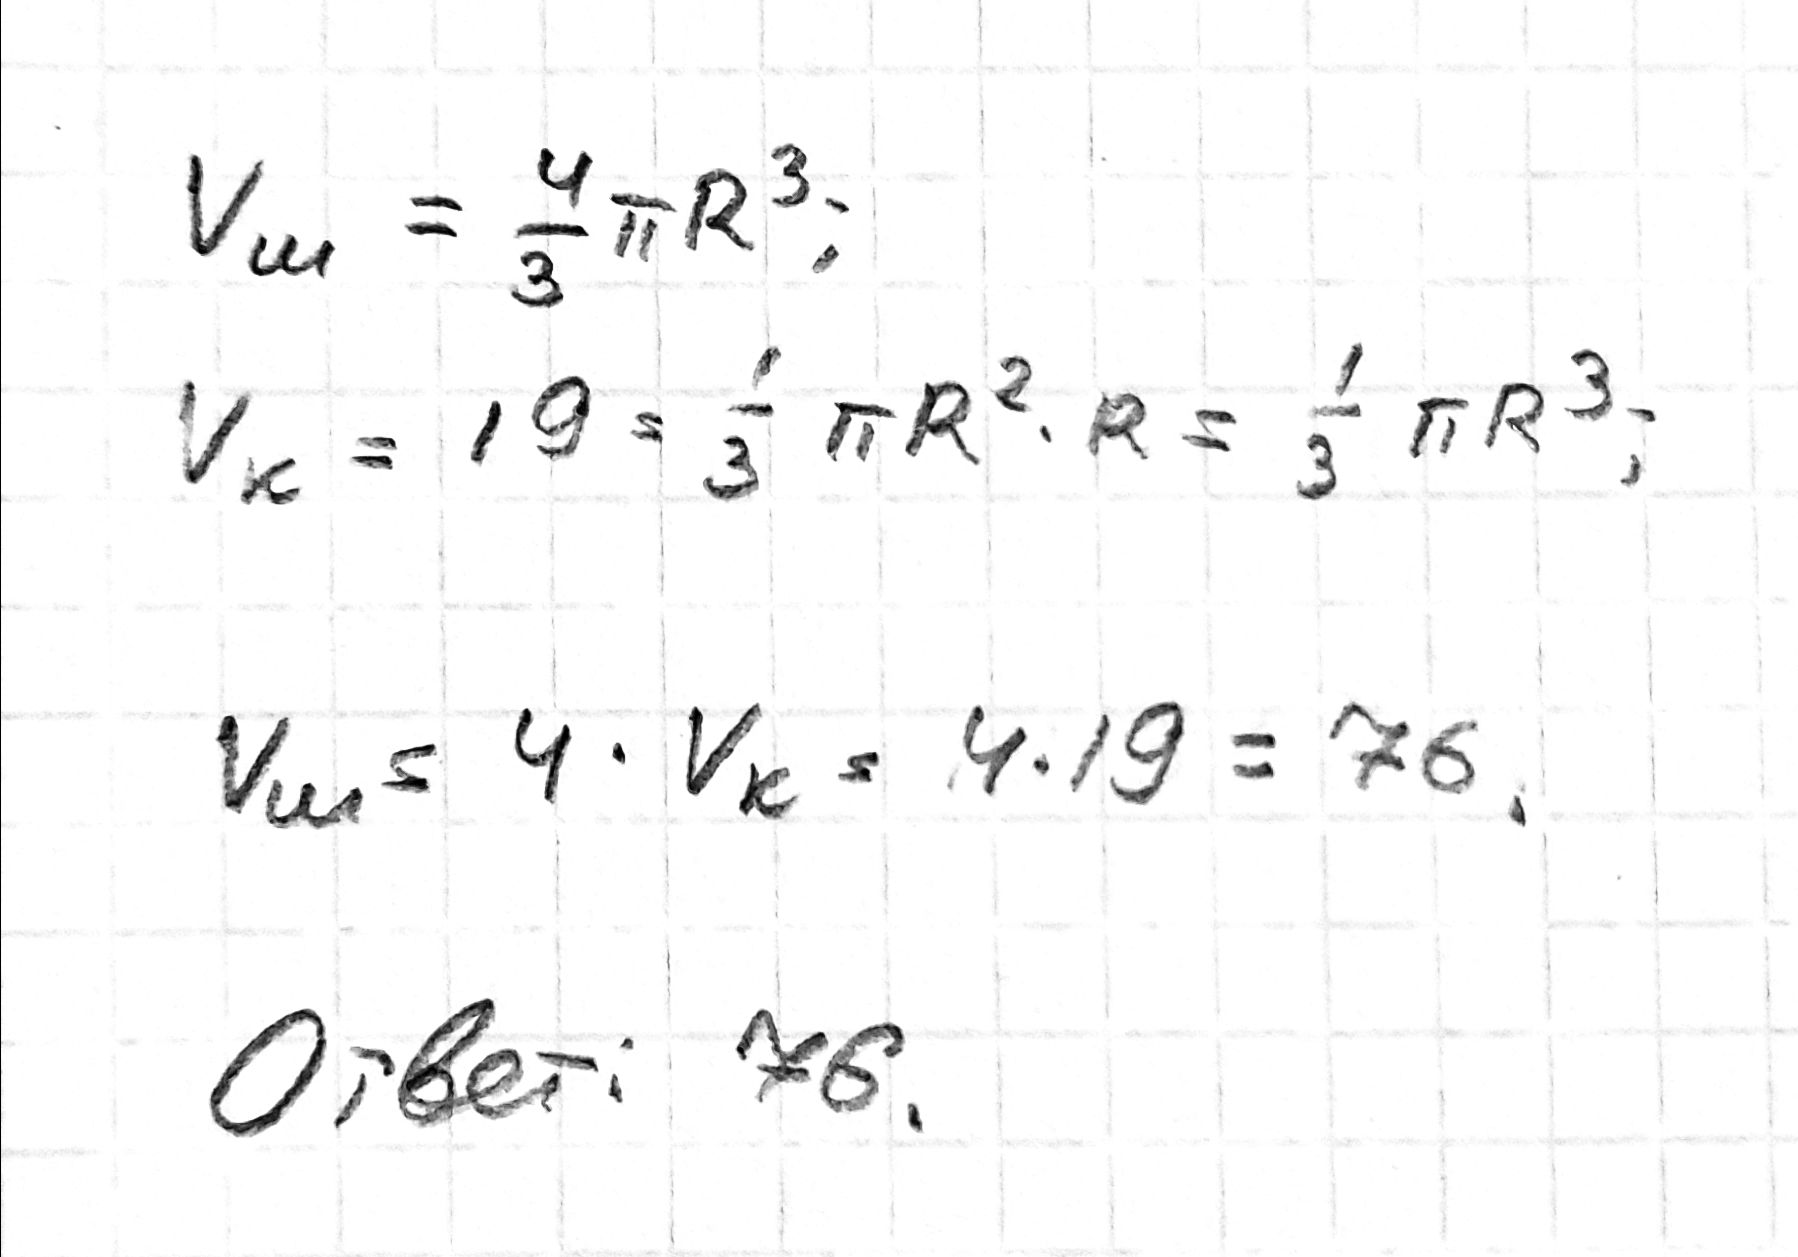 Vш = 4/3 πR³;
Vк = 19 = 1/3 πR² · R = 1/3 πR³;
Vш = 4 · Vк = 4 · 19 = 76.
Ответ: 76.